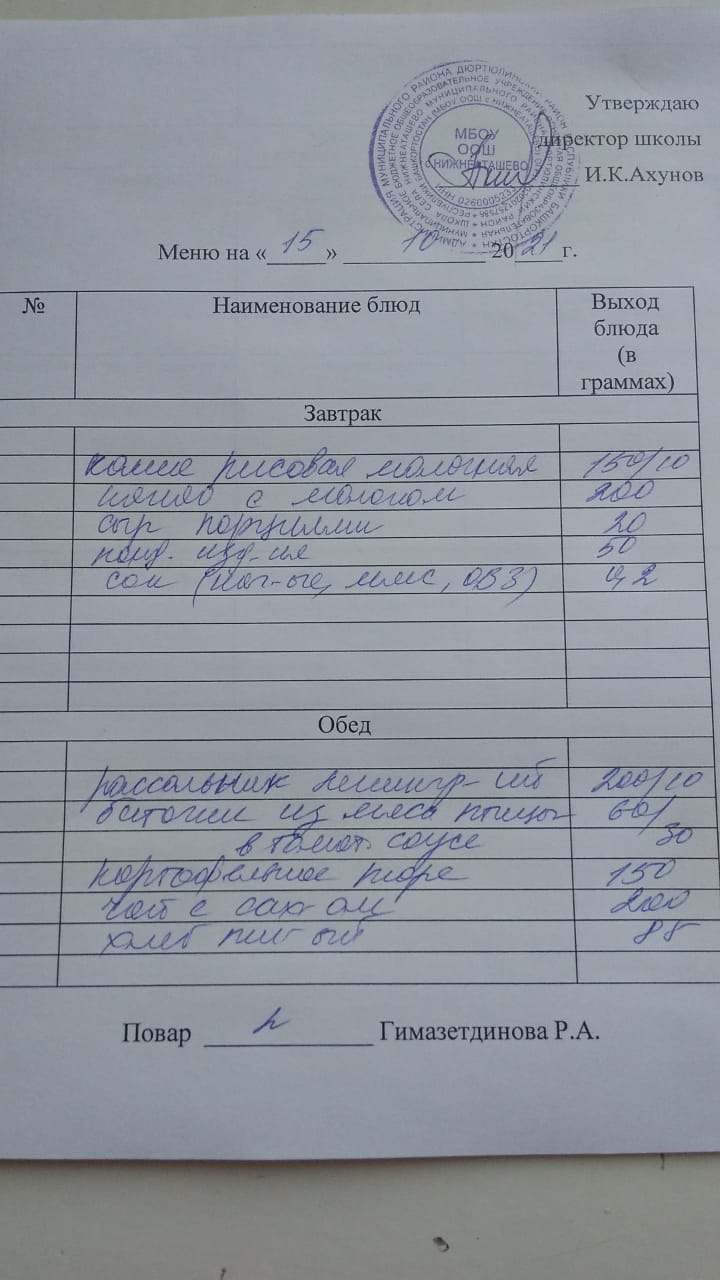 Утверждаю
директор школы
И.К.Ахунов
МБОУ
ООШ
с.НИЖНЕАТАШЕВО
Меню на «15» 10 2021г.
№ Наименование блюд Выход
блюда
(в
граммах)
Завтрак
каша рисовая молочная 150/10
какао с молоком 200
сыр порциями 20
конд. изд-ия 50
сок 0,2
Обед
рассольник ленингр-ий 200/10
биточки из мяса птицы 60/
в томат. соусе 30
картофельное пюре 150
чай с сах-ом 200
хлеб 88
Повар Гимазетдинова Р.А.